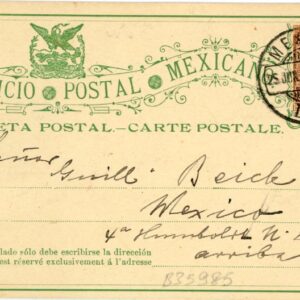 ICIO POSTAL MEXICAN
ETA POSTAL.—CARTE POSTALE.
Señor
Guill. Beick
Mexico
4a Humboldt N.
arriba
lado sólo debe escribirse la dirección
est réservé exclusivement á l'adresse
B35985